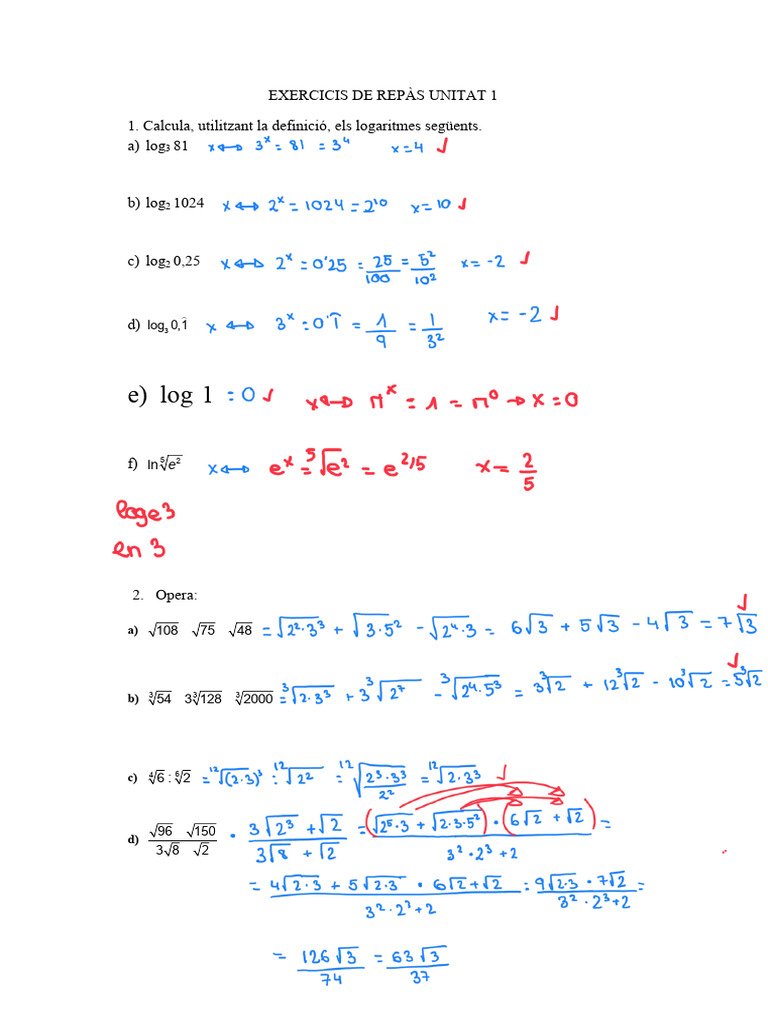 EXERCICIS DE REPÀS UNITAT 1
1. Calcula, utilitzant la definició, els logaritmes següents.
a) log₃ 81 x ↔ 3ˣ = 81 = 3⁴ x = 4 ✓
b) log₂ 1024 x ↔ 2ˣ = 1024 = 2¹⁰ x = 10 ✓
c) log₂ 0,25 x ↔ 2ˣ = 0'25 = 25/100 = 5²/10² x = -2 ✓
d) log₃ 0,1̂ x ↔ 3ˣ = 0.1̂ = 1/9 = 1/3² x = -2 ✓
e) log 1 = 0 ✓ x ↔ πˣ = 1 = π⁰ → x = 0
f) ln ⁵√e² x ↔ eˣ = ⁵√e² = e^2/5 x = 2/5
loge 3
en 3
2. Opera:
a) √108 √75 √48 = √2²·3³ + √3·5² - √2⁴·3 = 6√3 + 5√3 - 4√3 = 7√3 ✓
b) ³√54 3³√128 ³√2000 = ³√2·3³ + 3³√2⁷ - ³√2⁴·5³ = 3³√2 + 12³√2 - 10³√2 = 5³√2 ✓
c) ⁴√6 : ⁶√2 = ¹²√(2·3)³ : ¹²√2² = ¹²√(2³·3³/2²) = ¹²√2·3³ ✓
d) (√96 √150)/(3√8 √2) · (3√2³ + √2)/(3√8 + √2) = (√2⁵·3 + √2·3·5²)·(6√2 + √2)/(3²·2³+2) =
= (4√2·3 + 5√2·3 · 6√2 + √2)/(3²·2³+2) = (9√2·3 · 7√2)/(3²·2³+2) =
= 126√3/74 = 63√3/37